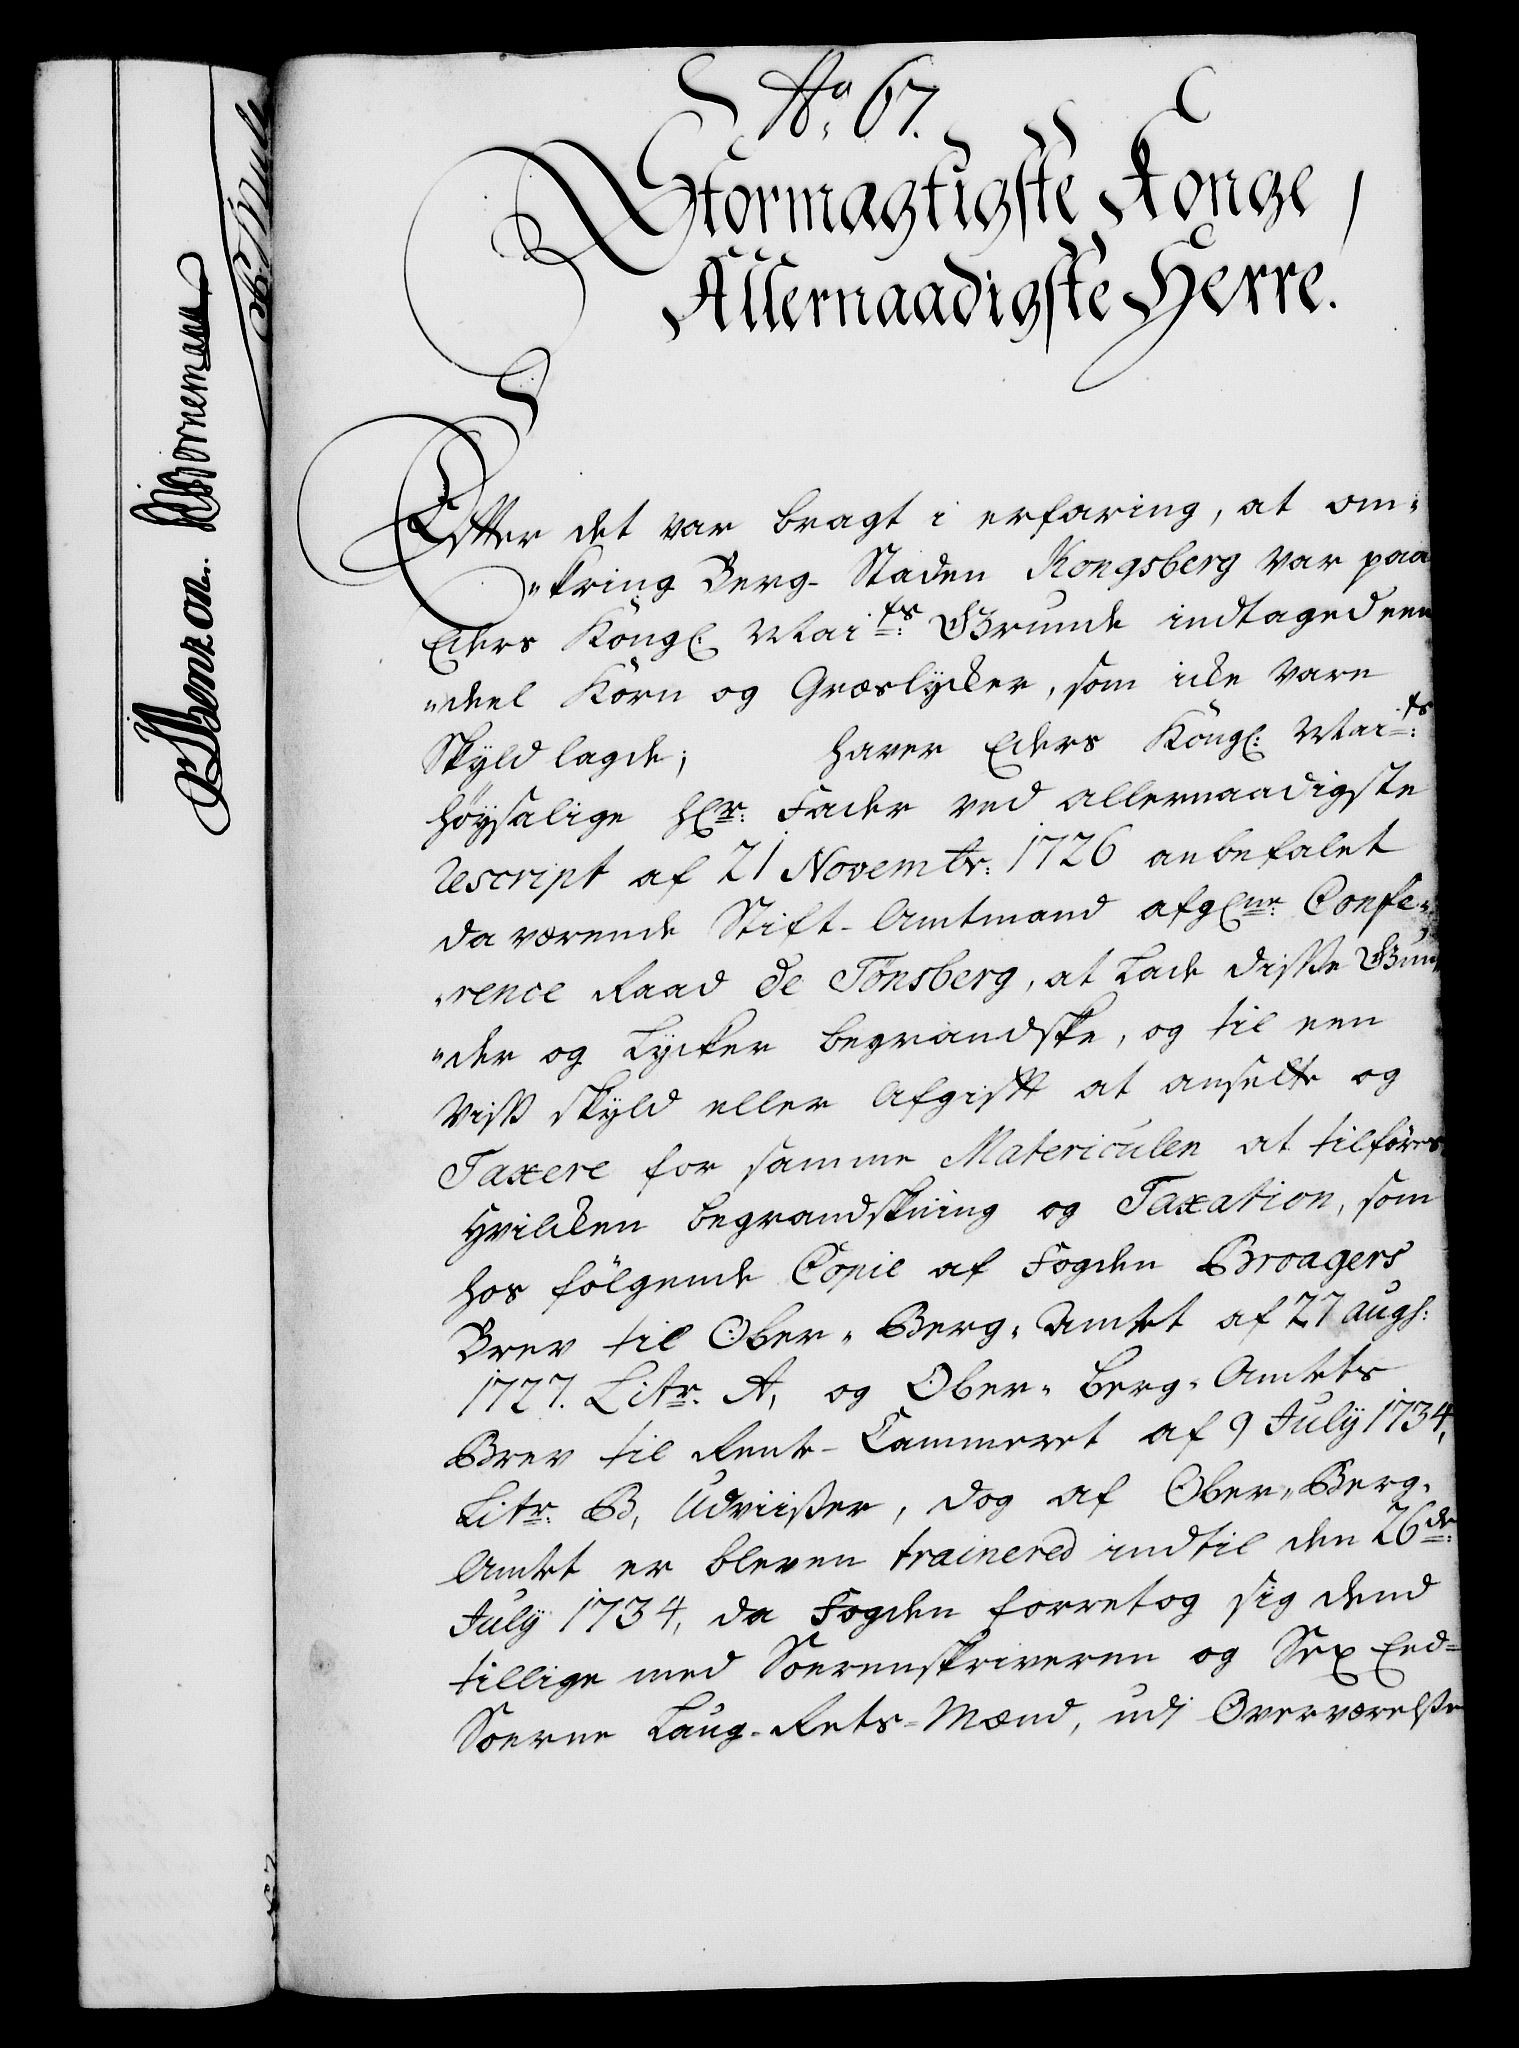 No. 67.
Stormagtigste Konge,
Allernaadigste Herre.
Efter det var bragt i erfaring, at om-
"kring Berg-Staden Kongsberg var paa
Eders Kongl: Maits: Grunde indtaged een
"deel Korn og Græslycker, som icke vare
Skyld lagde; haver Eders Kongl: Maits:
höysalige Hr: Fader ved allernaadigste
Rescript af 21 Novembr: 1726 anbefalet
da værende Stift-Amtmand afgne: Confe-
"rence Raad de Tönsberg, at lade disse Grun
"der og Lycker begrandske, og til een
viss skyld eller Afgift at ansette og
Taxere for samme Matericulen at tilföres
Hvilcken begrandskning og Taxation, som
hos fölgende Copie af Fogden Broagers
Brev til Ober-Berg-Amtet af 27 Augs:
1727. Litr. A, og Ober-Berg-Amtets
Brev til Rente-Cammeret af 9 July 1734,
Litr: B, Udviiser, dog af Ober-Berg-
Amtet er bleven trainered indtil den 26de:
July 1734, da Fogden foretog sig dend
tillige med Sorenskriveren og Sex Eed-
Soerne Laug-Rets-Mænd, udi Overværelse
Benzon. Bornemann